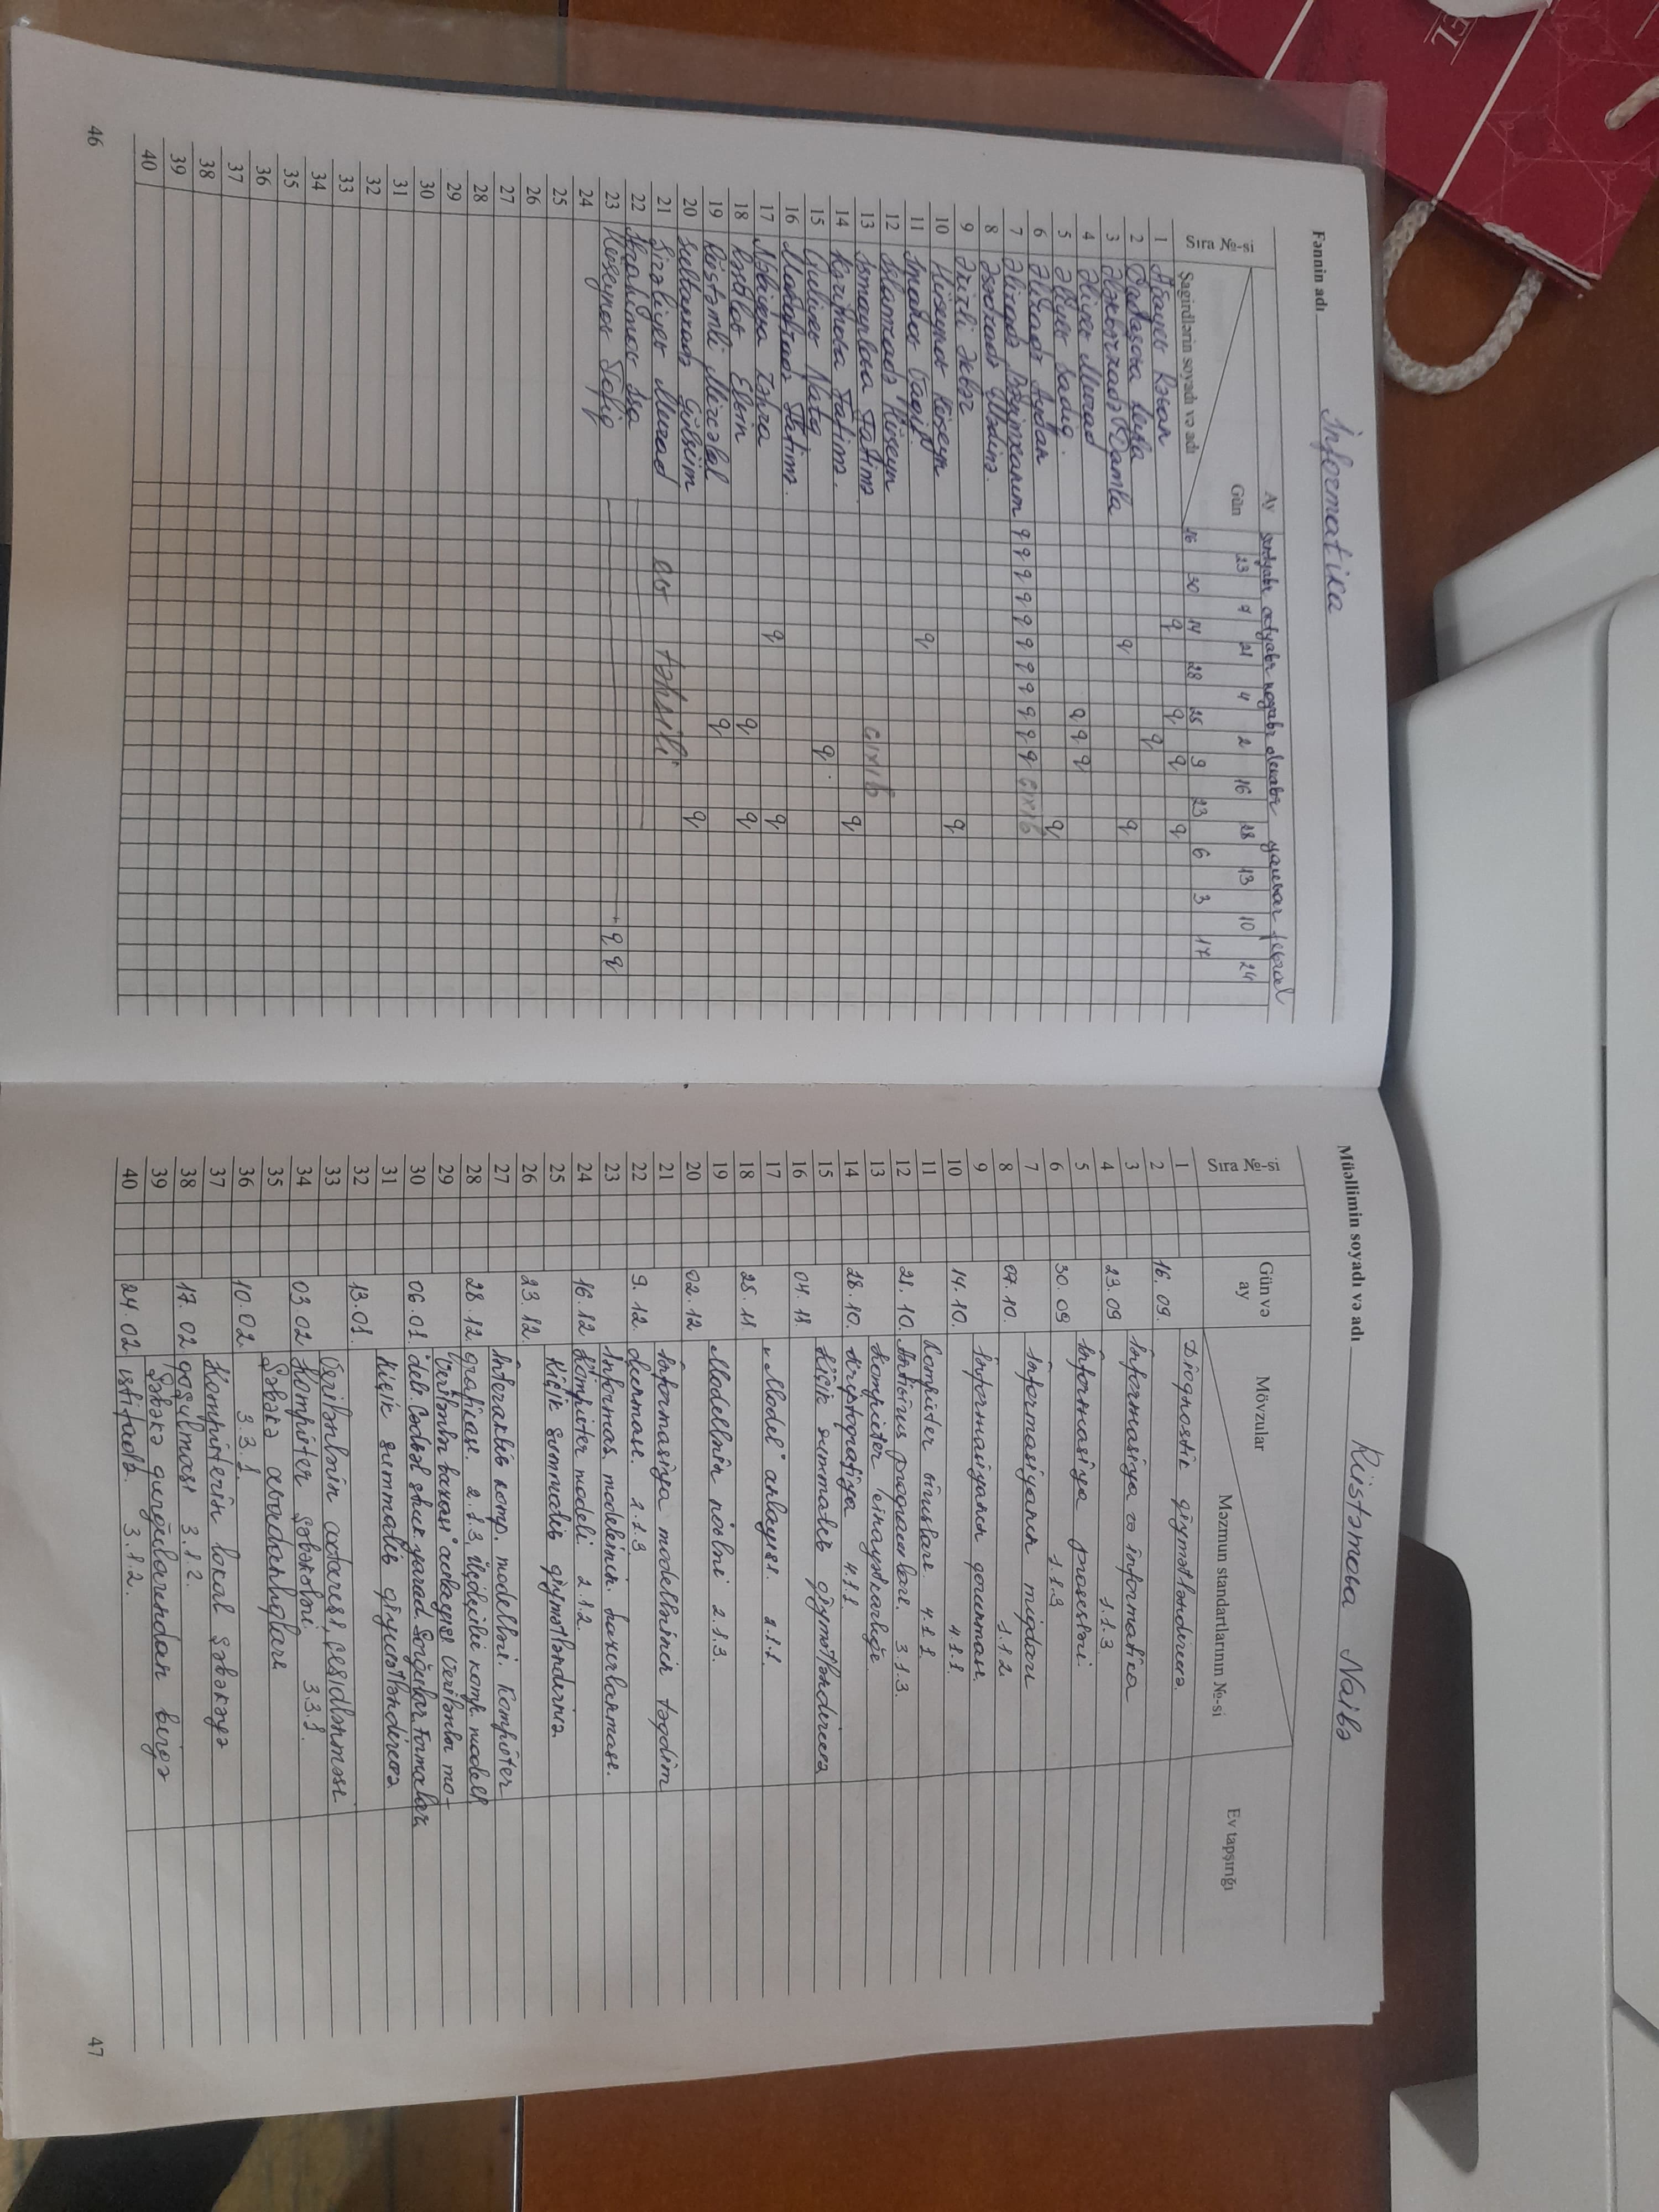 EL
Fənnin adı İnformatika
Ay sentyabr oktyabr noyabr dekabr yanvar fevral
Gün 23 7 21 4 2 16 28 13 10 24
16 30 14 28 25 9 23 6 3 17
Sıra №-si
Şagirdlərin soyadı və adı
1 Ağayev Rəvan q q q q
2 Dadaşova Leyla q
3 Ələkbərzadə Damla q q
4 Əliyev Murad
5 Əliyev Sadiq q q q
6 Əlizadə Aydan q
7 Əlizadə Bəyimxanım q q q q q q q q q q q çıxıb
8 Əsədzadə Mədinə
9 Əzizli Əkbər
10 Hüseynov Hüseyn q
11 İmanov Vaqif q
12 İslamzadə Hüseyn
13 İsmayılova Fatimə çıxıb
14 Kərimova Fatimə q
15 Quliyev Natiq q
16 Manafzadə Fatimə
17 Nəbiyeva Zəhra q q
18 Rəsulov Elvin q q
19 Rüstəmli Mircəlal q
20 Sultanzadə Gülsüm q
21 Şirəliyev Murad ev təhsili
22 İbrahimov İsa
23 Hüseynov Tofiq q q
24
25
26
27
28
29
30
31
32
33
34
35
36
37
38
39
40
46
Müəllimin soyadı və adı Rüstəmova Naibə
Sıra №-si
Gün və ay
Mövzular
Məzmun standartlarının №-si
Ev tapşırığı
1 Diaqnostik qiymətləndirmə.
2 16. 09.
3 İnformasiya və informatika
4 23. 09 1.1.3
5 İnformasiya prosesləri
6 30. 09 1.1.3
7 İnformasiyanın miqdarı
8 07. 10. 1.1.2
9 İnformasiyanın qorunması.
10 14. 10. 4.1.1.
11 Kompüter virusları. 4.1.1
12 21. 10. Antivirus proqramları. 3.1.3.
13 Kompüter cinayətkarlığı
14 28. 10. Kriptoqrafiya 4.1.1
15 Kiçik summativ qiymətləndirmə
16 04. 11.
17 "Model" anlayışı. 2.1.1.
18 25. 11.
19 Modellərin növləri 2.1.3.
20 02. 12
21 İnformasiya modellərinin təqdim
22 9. 12. olunması. 2.1.3.
23 İnformas. modelinin hazırlanması.
24 16. 12 Kompüter modeli 2.1.2.
25 Kiçik summativ qiymətləndirmə
26 23. 12.
27 İnteraktiv komp. modelləri. Kompüter
28 28. 12. qrafikası. 2.1.3, üçölçülü komp. modell
29 "Verilənlər bazası" anlayışı Verilənlər mo-
30 06. 01. deli. Cədvəl struk. yarad. Sorğular. Formalar
31 Kiçik summativ qiymətləndirmə
32 13. 01.
33 Verilənlərin axtarışı, çeşidlənməsi
34 03. 02 Kompüter şəbəkələri. 3.3.1.
35 Şəbəkə avadanlıqları
36 10. 02. 3.3.1.
37 Kompüterin lokal şəbəkəyə
38 17. 02 qoşulması 3.1.2.
39 Şəbəkə qurğularından birgə
40 24. 02 istifadə. 3.1.2.
47